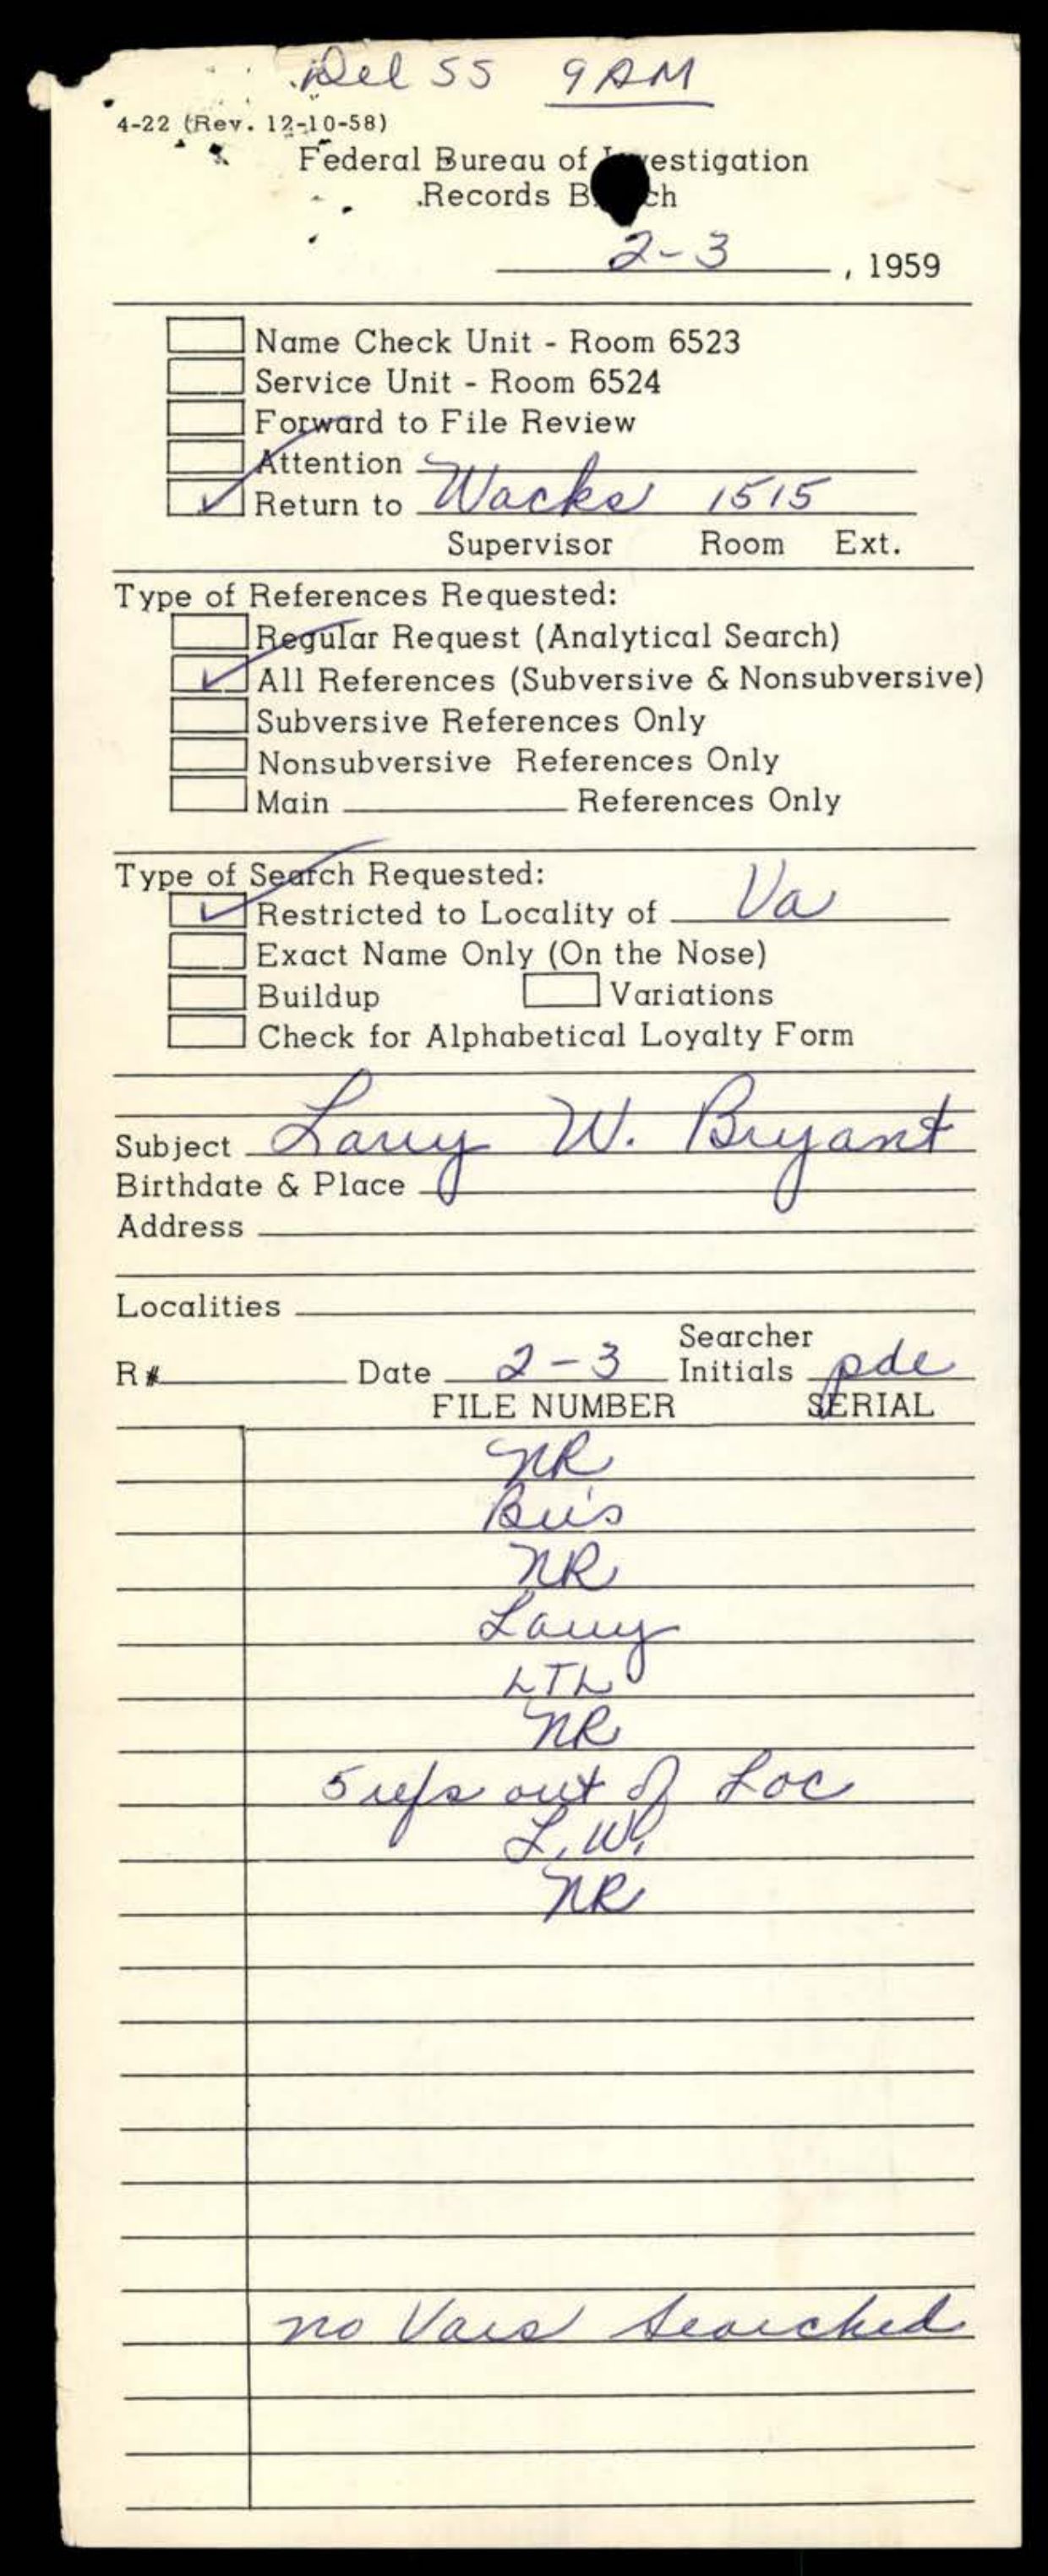 Del 55 9 AM
4-22 (Rev. 12-10-58)
Federal Bureau of Investigation
Records Branch
2-3, 1959
Name Check Unit - Room 6523
Service Unit - Room 6524
Forward to File Review
Attention
Return to Wacks 1515
Supervisor Room Ext.
Type of References Requested:
Regular Request (Analytical Search)
All References (Subversive & Nonsubversive)
Subversive References Only
Nonsubversive References Only
Main References Only
Type of Search Requested:
Restricted to Locality of Va
Exact Name Only (On the Nose)
Buildup Variations
Check for Alphabetical Loyalty Form
Subject Larry W. Bryant
Birthdate & Place
Address
Localities
Searcher
R# Date 2-3 Initials pde
FILE NUMBER SERIAL
NR
NR
Larry
LTL
NR
5 refs out of Loc
L.W.
NR
no Vars searched